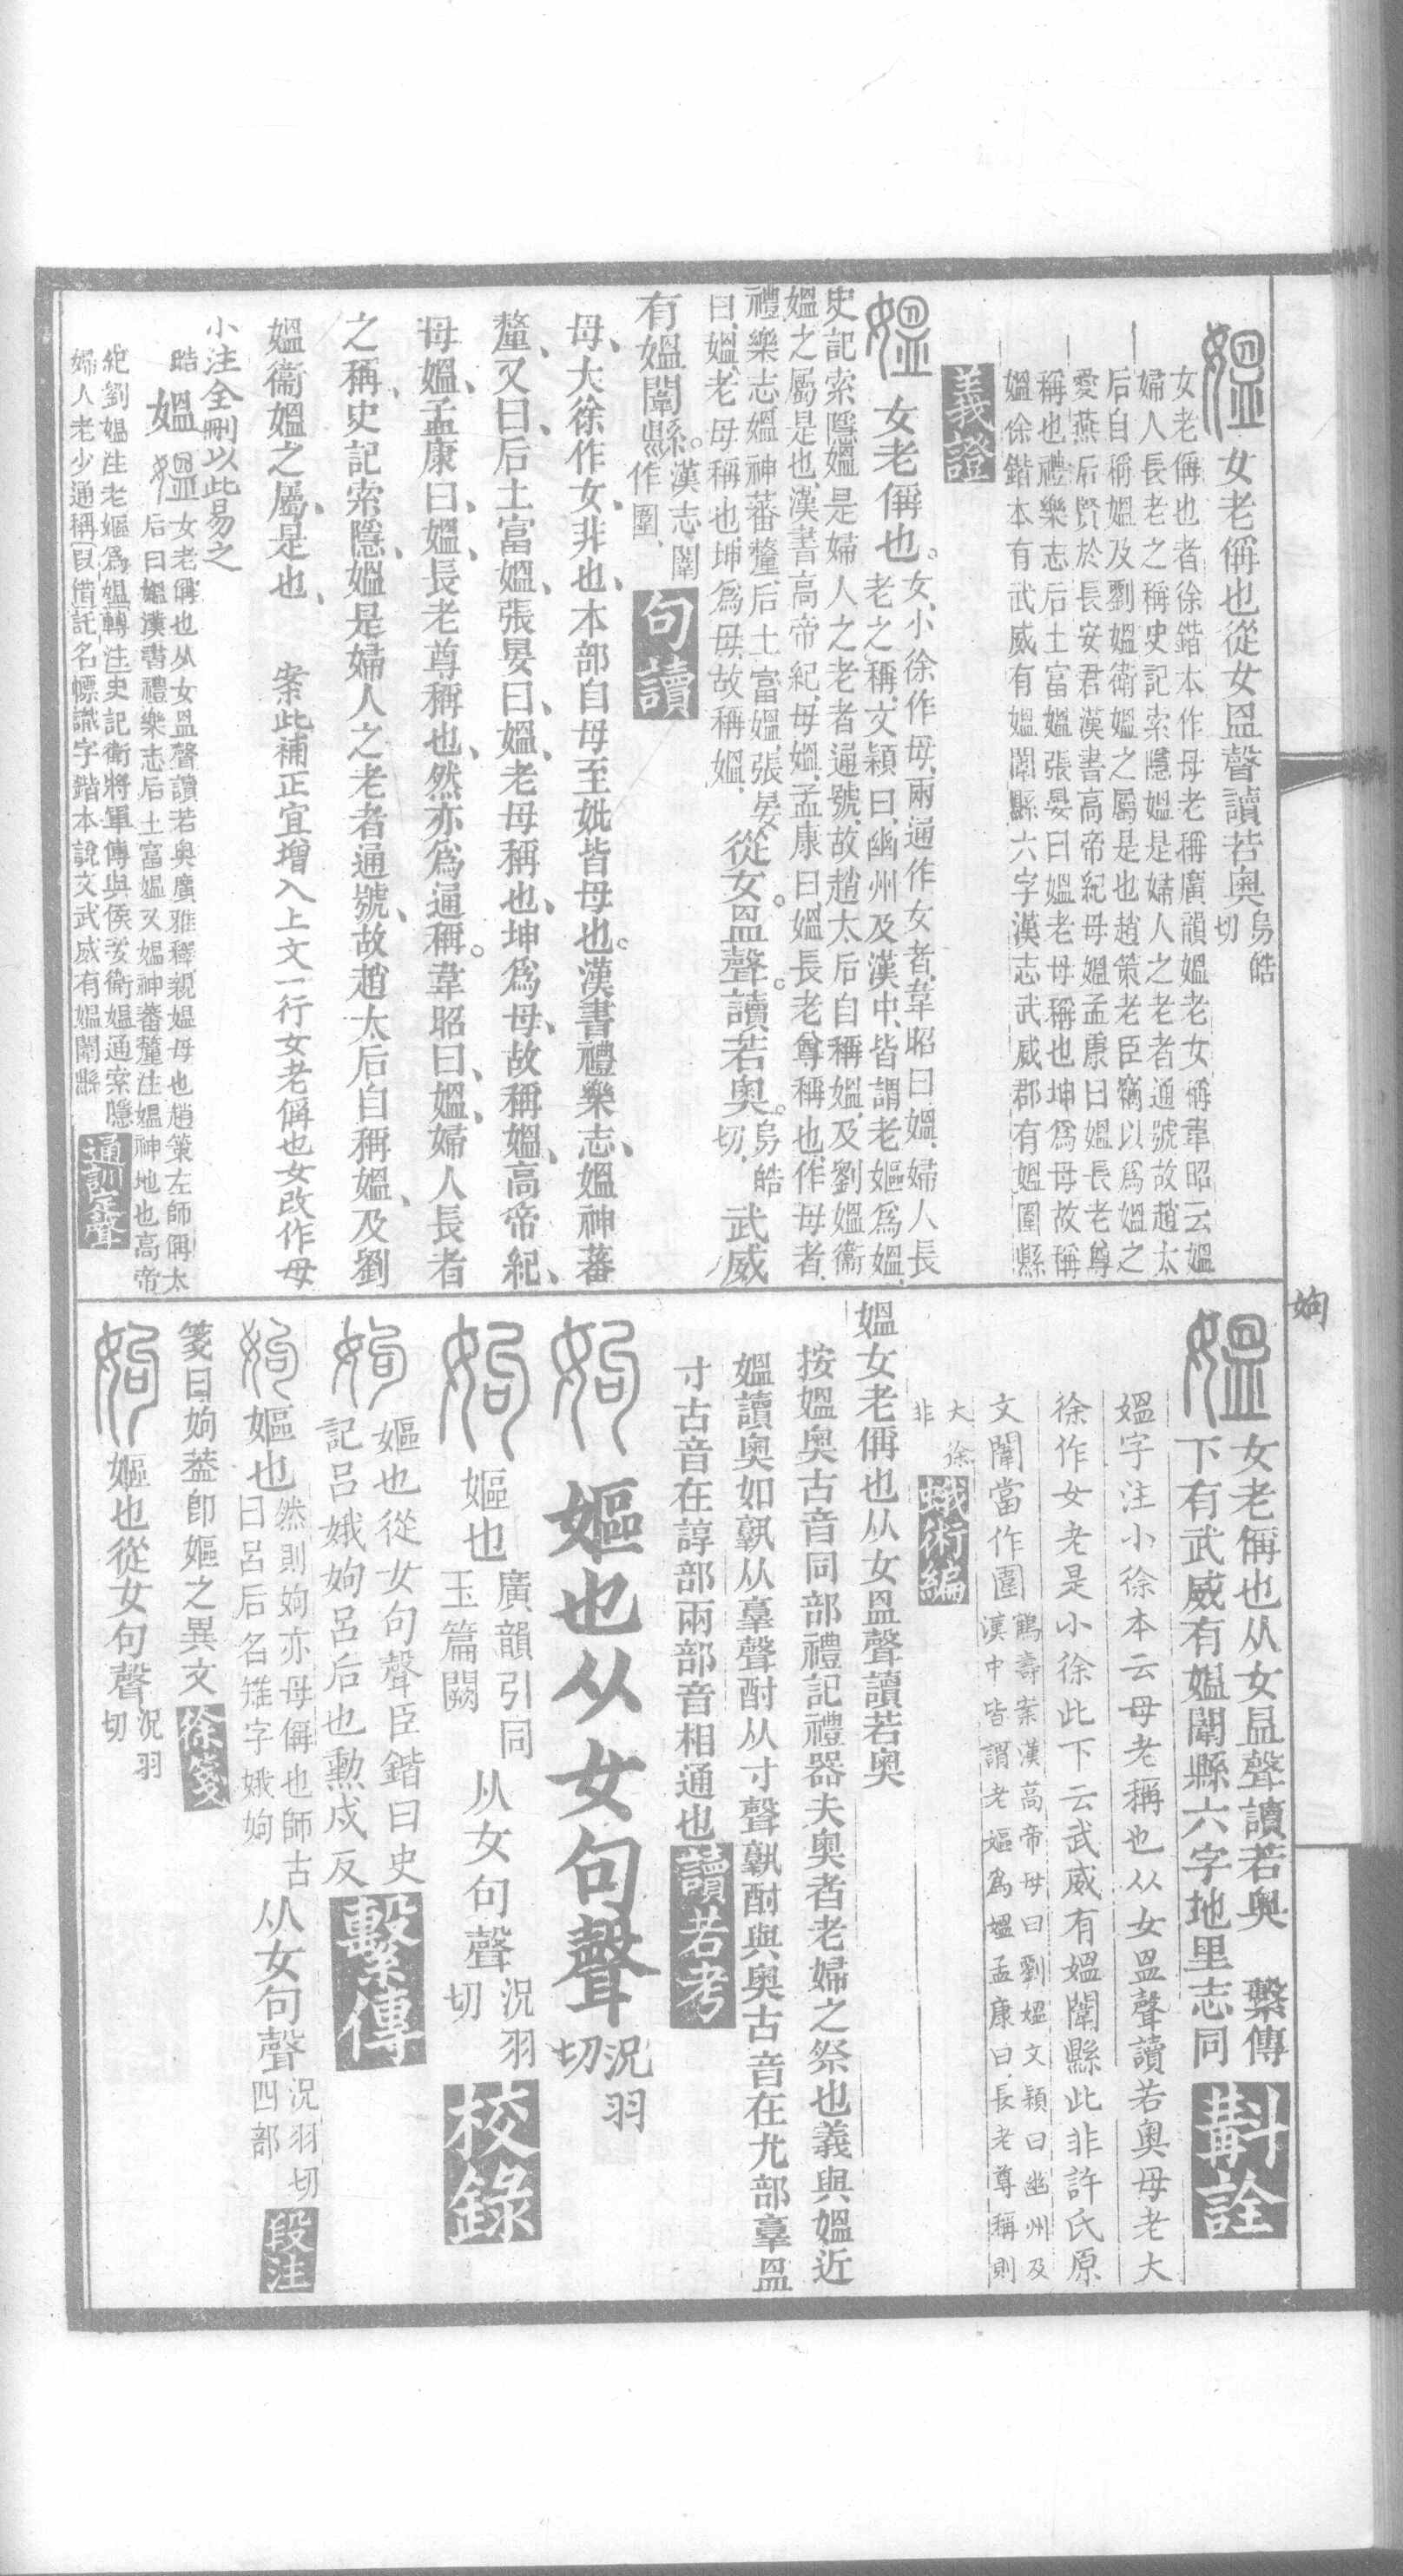 媼 女老偁也從女𥁕聲讀若奧烏皓切
女老偁也者徐鍇本作母老稱廣韻媼老女稱韋昭云媼
婦人長老之稱史記索隱媼是婦人之老者通號故趙太
后自稱媼及劉媼衛媼之屬是也趙策老臣竊以為媼之
愛燕后賢於長安君漢書高帝紀母媼孟康曰媼長老尊
稱也禮樂志后土富媼張晏曰媼老母稱也坤爲母故稱
媼徐鍇本有武威有媼闈縣六字漢志武威郡有媼圍縣
義證
媼 女老偁也。女、小徐作母、兩通作女者、韋昭曰、媼、婦人長
老之稱、文穎曰、幽州及漢中、皆謂老嫗爲媼、
史記索隱、媼是婦人之老者通號、故趙太后自稱媼、及劉媼衛
媼之屬是也、漢書高帝紀、母媼、孟康曰、媼長老尊稱也、作母者、
禮樂志媼神蕃釐、后土富媼、張晏
曰、媼、老母稱也、坤爲母、故稱媼、從女。𥁕聲。讀若奧。烏皓切、武威
有媼闈縣。漢志、闈作圍、句讀
母、大徐作女、非也、本部自母至妣皆母也。漢書禮樂志、媼神蕃
釐、又曰、后土富媼、張晏曰、媼、老母稱也、坤爲母、故稱媼、高帝紀、
母媼、孟康曰、媼、長老尊稱也、然亦爲通稱。韋昭曰、媼、婦人長者
之稱、史記索隱、媼是婦人之老者通號、故趙太后自稱媼、及劉
媼衞媼之屬是也、 案此補正宜增入上文一行女老偁也女改作母
小注全刪以此易之
皓 媼 女老偁也从女𥁕聲讀若奧廣雅釋親媼母也趙策左師偁太
后曰媼漢書禮樂志后土富媼又媼神蕃釐注媼神地也高帝
紀劉媼注老嫗爲媼轉注史記衛將軍傳與侯妾衛媼通索隱
婦人老少通稱叚借託名幖識字鍇本說文武威有媼闈縣 通訓定聲
媼 女老偁也从女昷聲讀若奧 繫傳
下有武威有媼闈縣六字地里志同 斠詮
媼字注小徐本云母老稱也从女𥁕聲讀若奧母老大
徐作女老是小徐此下云武威有媼闈縣此非許氏原
文闈當作圍 鶴壽案漢高帝母曰劉媼文穎曰幽州及
漢中皆謂老嫗爲媼孟康曰長老尊稱則
大徐非 蛾術編
媼女老偁也从女𥁕聲讀若奧
按媼奧古音同部禮記禮器夫奧者老婦之祭也義與媼近
媼讀奧如孰从𦎫聲酎从寸聲孰酎與奧古音在尤部𦎫𥁕
寸古音在諄部兩部音相通也 讀若考
姁 嫗也从女句聲 況羽切
姁 嫗也 廣韻引同玉篇闕 从女句聲 況羽切 校錄
姁 嫗也從女句聲臣鍇曰史
記呂娥姁呂后也勲戍反 繫傳
姁 嫗也 然則姁亦母偁也師古曰呂后名雉字娥姁 从女句聲 況羽切四部 段注
箋曰姁葢卽嫗之異文 徐箋
姁 嫗也從女句聲 況羽切
姁